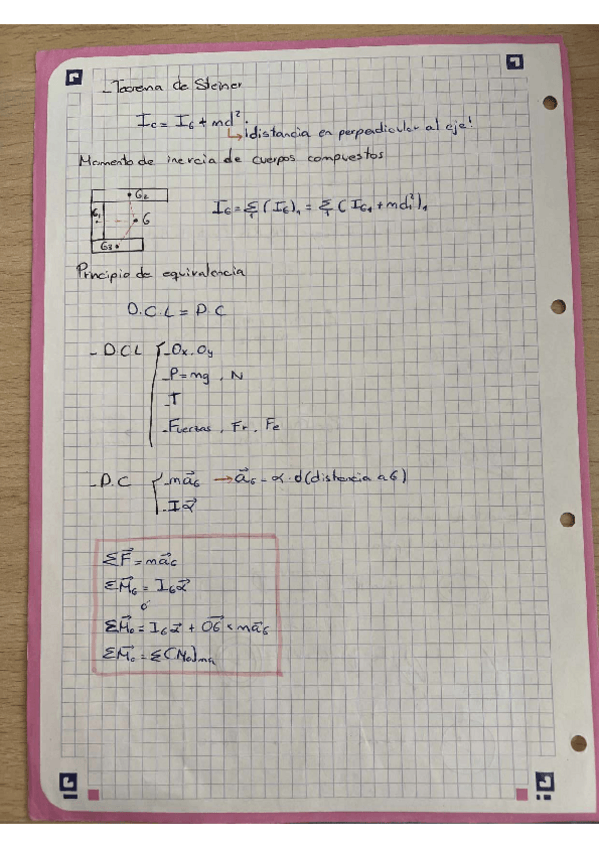 _Teorema de Steiner
I_C = I_G + md².
↳¡distancia en perpendicular al eje!
Momento de inercia de cuerpos compuestos
G₂
G₁
G
G₃
I_G = Σ_i (I_G)₁ = Σ_i (I_G₁ + md₁²)₁
Principio de equivalencia
D.C.L = D.C
- D.C.L { - Ox, Oy
- P = mg , N
- T
- Fuerzas , Fr , Fe
- D.C { - ma⃗_G → a⃗_G - α · d (distancia a G)
- Iα⃗
ΣF⃗ = ma⃗_G
ΣM⃗_G = I_G α⃗
ó
ΣM⃗_o = I_G α⃗ + OG⃗ × ma⃗_G
ΣM⃗_o = Σ(M_o)ma